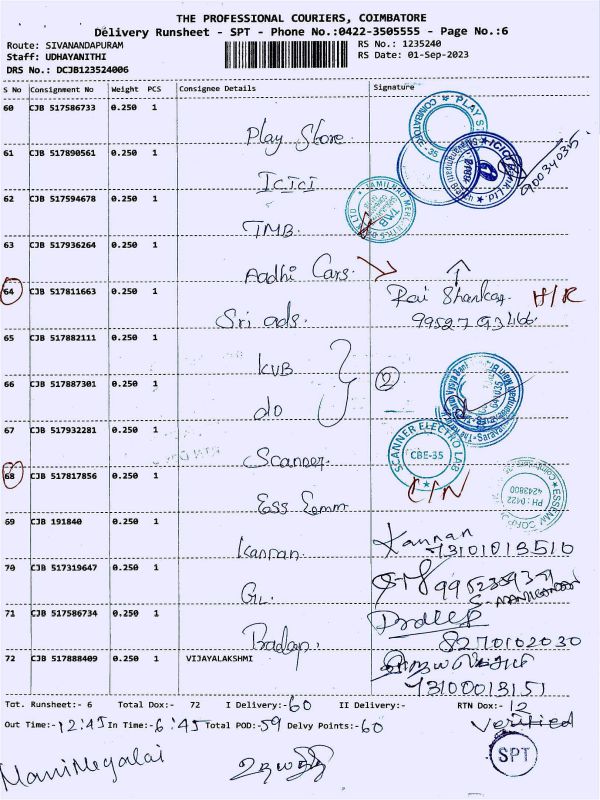 THE PROFESSIONAL COURIERS, COIMBATORE
Delivery Runsheet - SPT - Phone No.:0422-3505555 - Page No.:6
Route: SIVANANDAPURAM
RS No.: 1235240
Staff: UDHAYANITHI
RS Date: 01-Sep-2023
DRS No.: DCJB123524006
S No Consignment No Weight PCS Consignee Details Signature
60 CJB 517586733 0.250 1
Play Store
PLAY S
COIMBATOR
-35
61 CJB 517890561 0.250 1
ICICI
ICICI
62 CJB 517594678 0.250 1
TMB
TAMILNAD
TMB
63 CJB 517936264 0.250 1
Aadhi Cars
64 CJB 517811663 0.250 1
Sri ads.
Rai Shankar
H/R
65 CJB 517882111 0.250 1
KVB
66 CJB 517887301 0.250 1
do
2
67 CJB 517932281 0.250 1
Scanner
SCANNER ELECTRO LAB
CBE-35
68 CJB 517817856 0.250 1
Ess Emm
C/N
ESSEMM CORPO
PH : 0422
4243800
69 CJB 191840 0.250 1
Kannan
Kannan
73101013510
70 CJB 517319647 0.250 1
GL.
71 CJB 517586734 0.250 1
Pradeep
8270102030
72 CJB 517888409 0.250 1 VIJAYALAKSHMI
73100013151
Tot. Runsheet:- 6 Total Dox:- 72 I Delivery:-60 II Delivery:- RTN Dox:- 12
Out Time:-12:45 In Time:-6:45 Total POD:-59 Delvy Points:-60
Verified
SPT
ManiMegalai